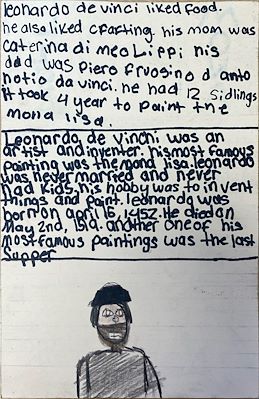 leonardo de vinci liked food.
he also liked crafting. his mom was
caterina di meo Lippi his
dad was Piero fruosino d anto
notio da vinci. he had 12 sidlings
it took 4 year to paint the
mona lisa.
Leonardo de vinchi was an
artist and inventer. his most famous
painting was the mona lisa. leonardo
was never married and never
had kids. his hobby was to invent
things and paint. leonardo was
born on april 15, 1452. He died on
May 2nd, 1519. another one of his
most famous paintings was the last
supper